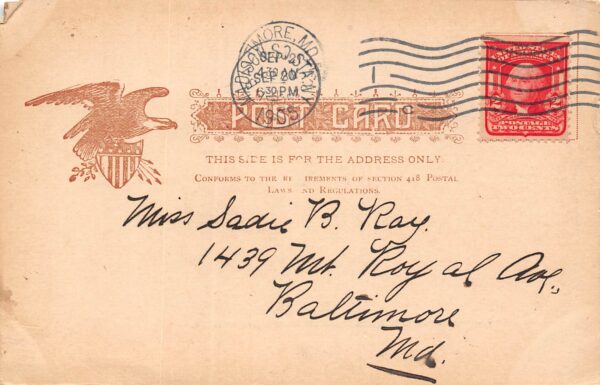 BALTIMORE, MD.
MADISON SQ. STA. N.Y.
SEP 20
6-30 PM
POST CARD
POSTAGE
TWO CENTS
THIS SIDE IS FOR THE ADDRESS ONLY.
CONFORMS TO THE REQUIREMENTS OF SECTION 418 POSTAL
LAWS AND REGULATIONS.
Miss Sadie B. Ray.
1439 Mt. Royal Ave.,
Baltimore
Md.